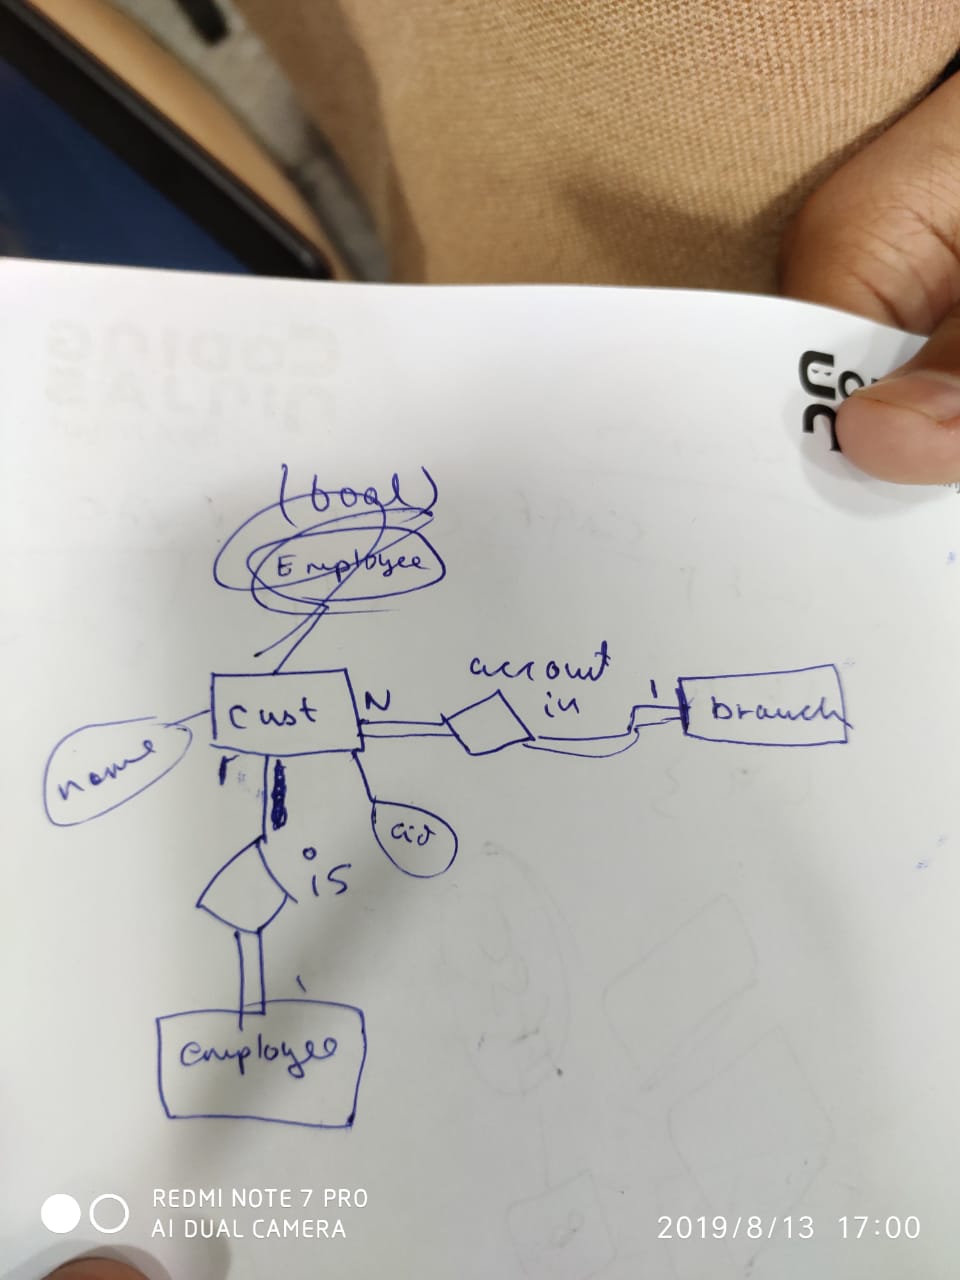 (bool)
Employee
account
in
cust
N
1
branch
name
cid
is
1
employee
REDMI NOTE 7 PRO
AI DUAL CAMERA
2019/8/13 17:00